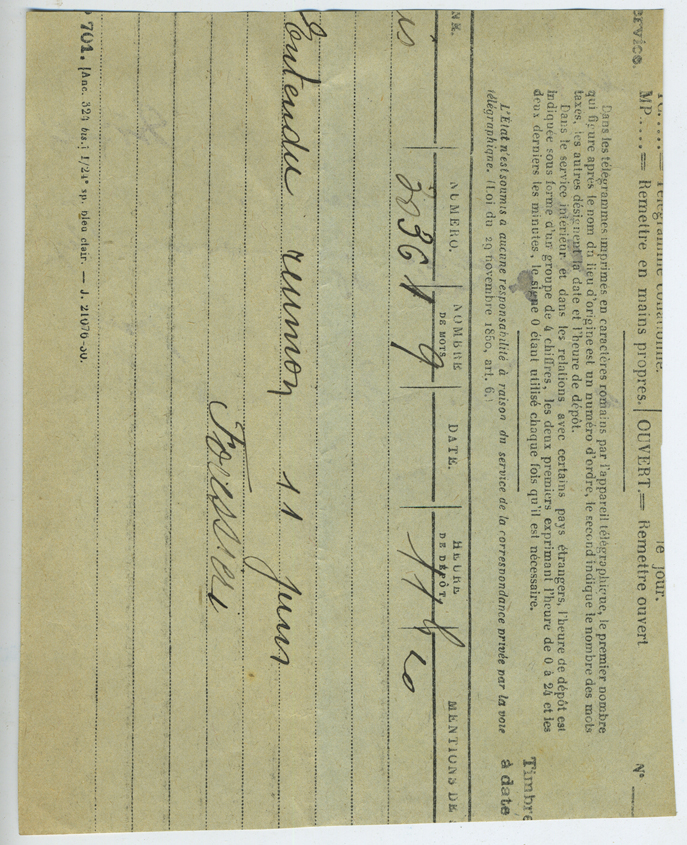 TC.....= Télégramme collationné.
MP.....= Remettre en mains propres.
le jour.
OUVERT.= Remettre ouvert
N°
Dans les télégrammes imprimés en caractères romains par l'appareil télégraphique, le premier nombre
qui figure après le nom du lieu d'origine est un numéro d'ordre, le second indique le nombre des mots
taxés, les autres désignent la date et l'heure de dépôt.
Dans le service intérieur et dans les relations avec certains pays étrangers, l'heure de dépôt est
indiquée sous forme d'un groupe de 4 chiffres, les deux premiers exprimant l'heure de 0 à 24 et les
deux derniers les minutes, le signe 0 étant utilisé chaque fois qu'il est nécessaire.
Timbre
à date
L'État n'est soumis à aucune responsabilité à raison du service de la correspondance privée par la voie
télégraphique. (Loi du 29 novembre 1850, art. 6.)
NUMÉRO.
NOMBRE
DE MOTS.
DATE.
HEURE
DE DÉPÔT.
MENTIONS DE
is
9
11 h 20
Entendu reunion 11 juin
701. [Anc. 324 bis.] 1/24e sp. bleu clair. — J. 21070-30.